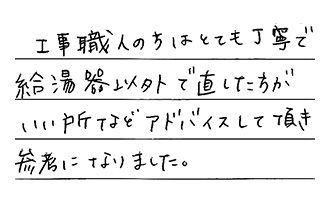 工事職人のちはとても丁寧で
給湯器以外で直した方が
いい所などアドバイスして頂き
参考になりました。